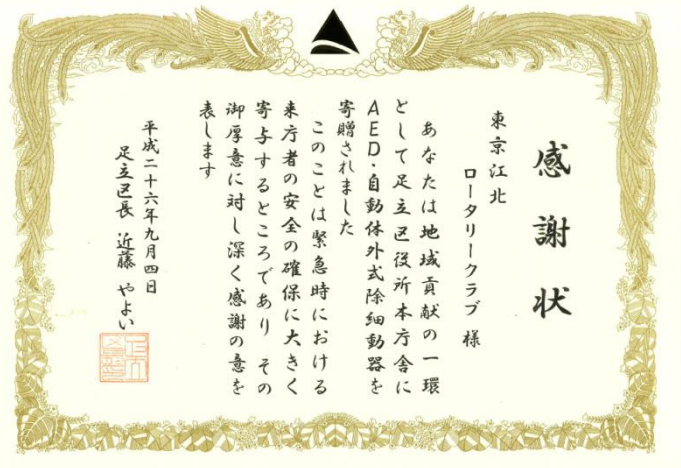 感謝状
東京江北
ロータリークラブ 様
あなたは地域貢献の一環
として足立区役所本庁舎に
AED・自動体外式除細動器を
寄贈されました
このことは緊急時における
来庁者の安全の確保に大きく
寄与するところであり その
御厚意に対し深く感謝の意を
表します
平成二十六年九月四日
足立区長 近藤 やよい